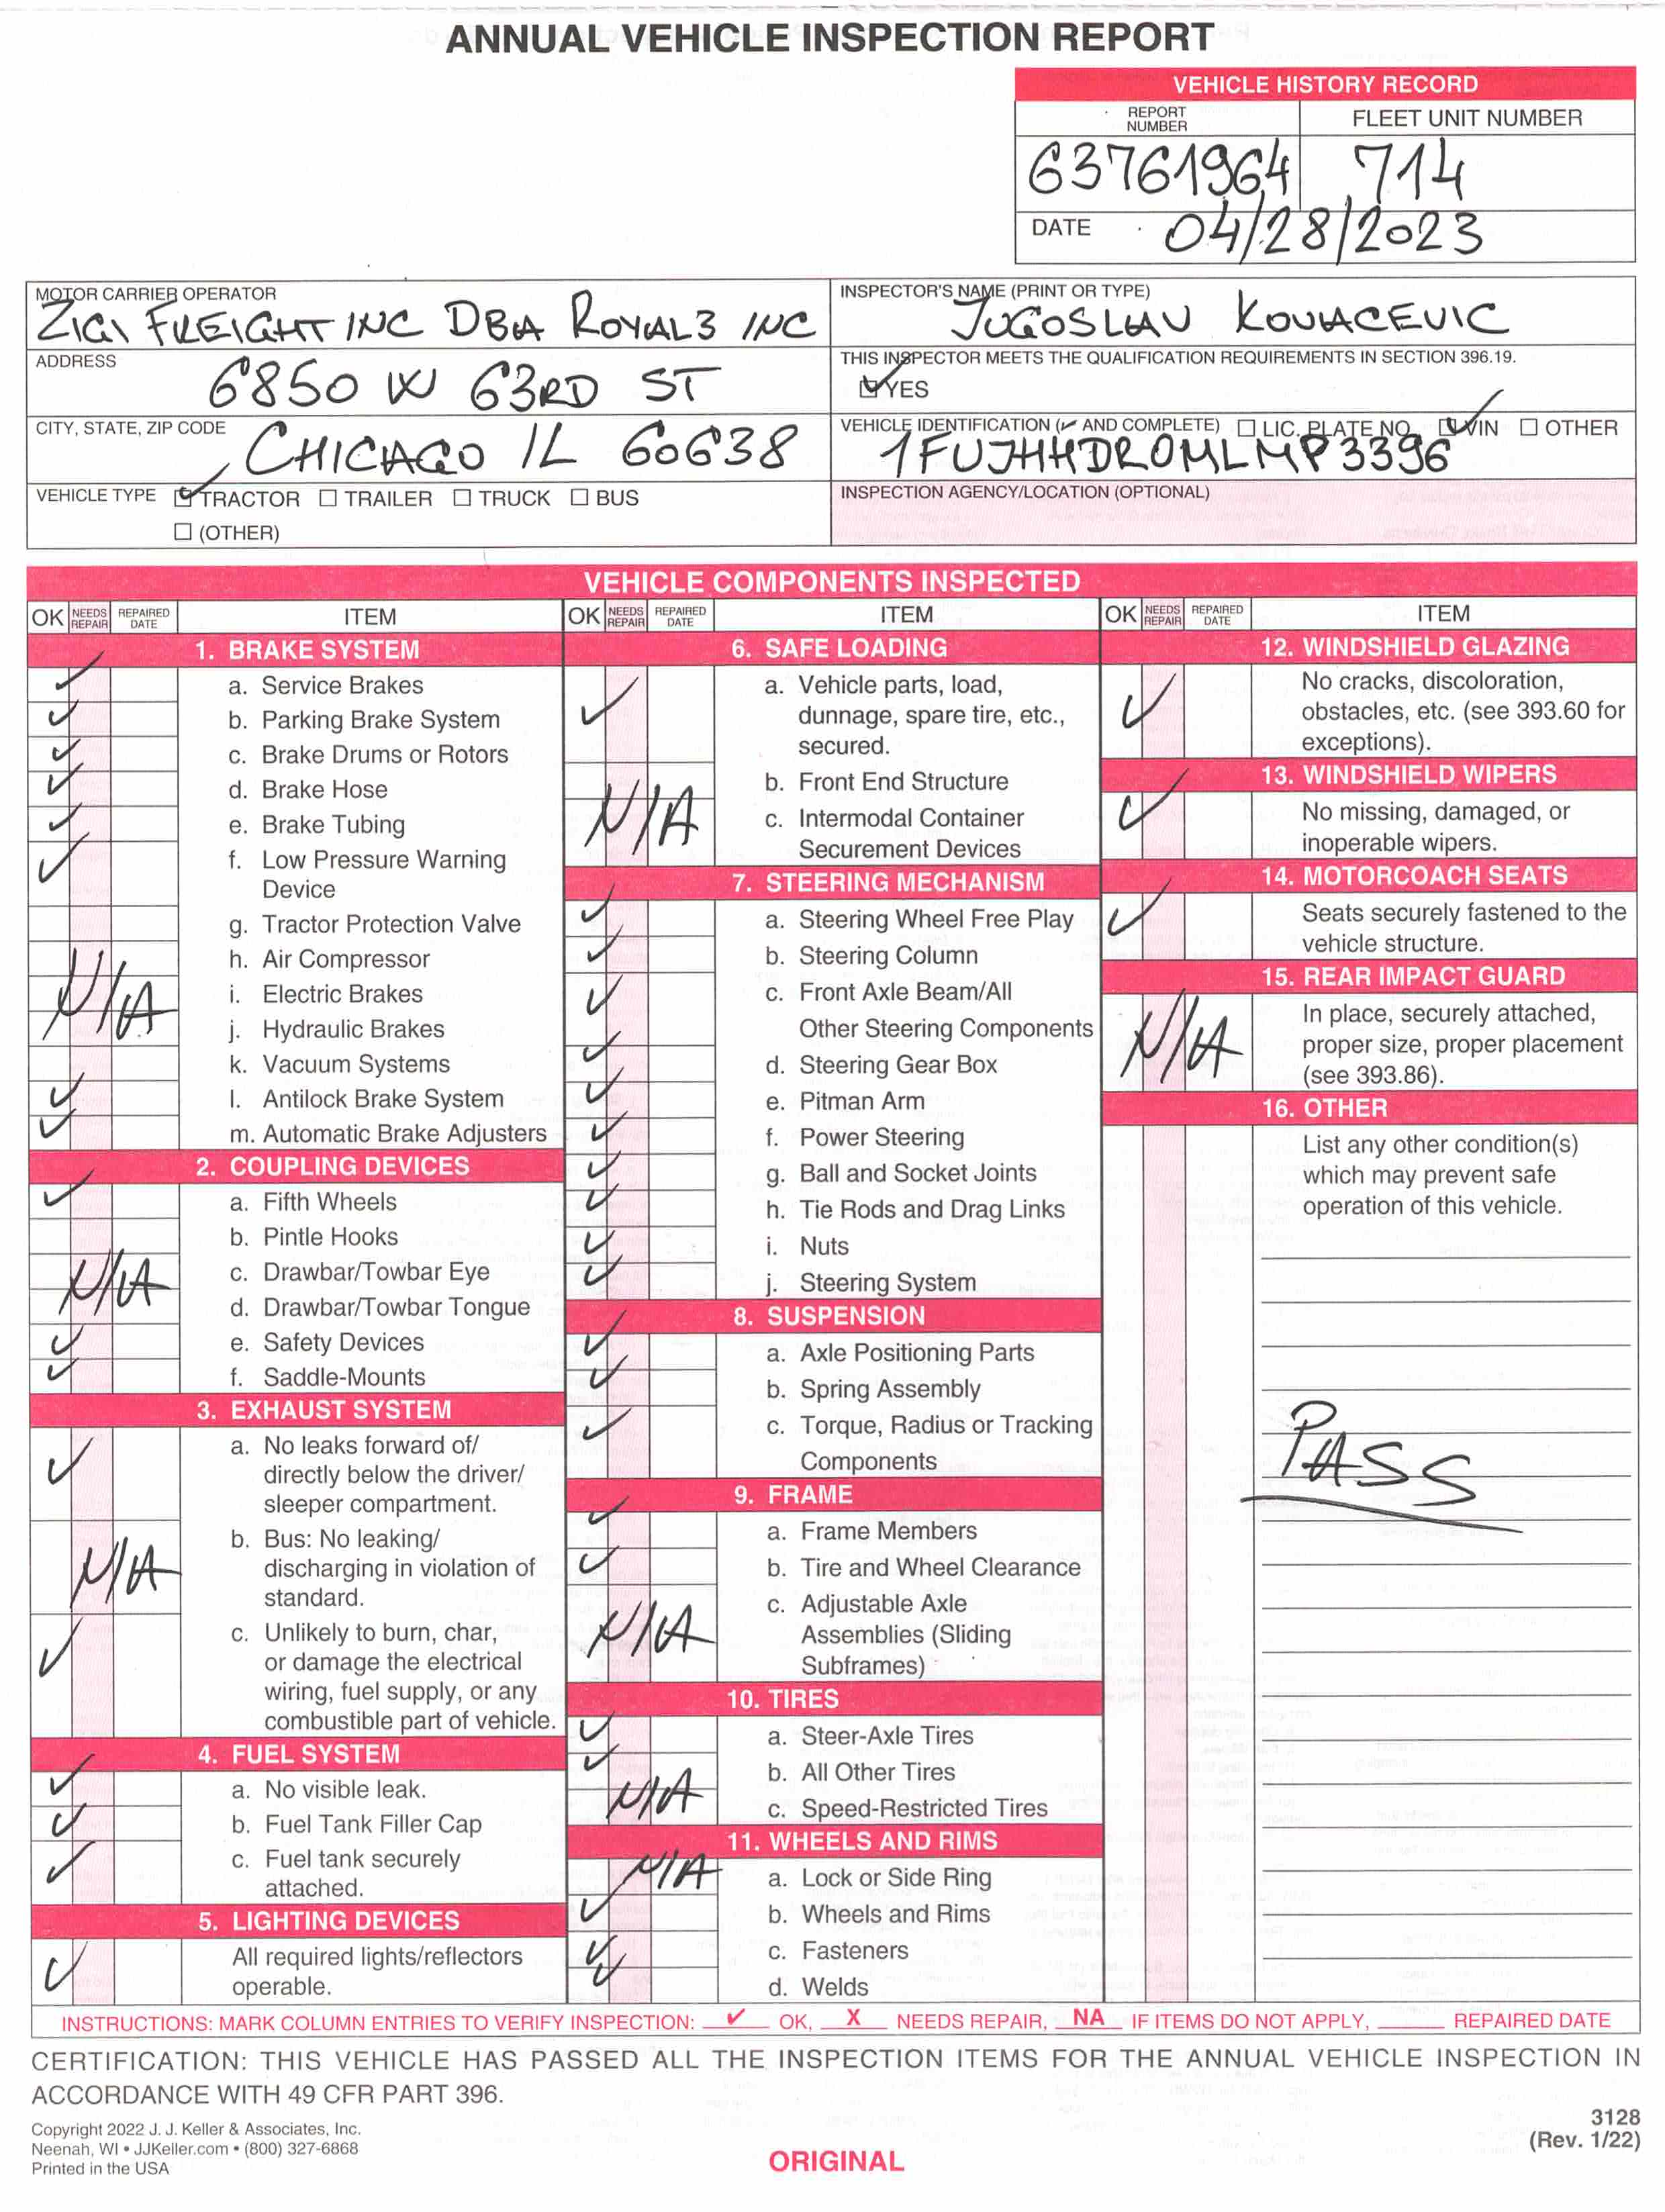 ANNUAL VEHICLE INSPECTION REPORT
VEHICLE HISTORY RECORD
REPORT NUMBER
FLEET UNIT NUMBER
63761964
714
DATE 04/28/2023
MOTOR CARRIER OPERATOR
ZIGI FREIGHT INC DBA ROYAL3 INC
INSPECTOR'S NAME (PRINT OR TYPE)
JUGOSLAV KOVACEVIC
ADDRESS
6850 W 63RD ST
THIS INSPECTOR MEETS THE QUALIFICATION REQUIREMENTS IN SECTION 396.19.
☑ YES
CITY, STATE, ZIP CODE
CHICAGO IL 60638
VEHICLE IDENTIFICATION (✓ AND COMPLETE) ☐ LIC. PLATE NO. ☑ VIN ☐ OTHER
1FUJHHDR0MLMP3396
VEHICLE TYPE ☑ TRACTOR ☐ TRAILER ☐ TRUCK ☐ BUS
☐ (OTHER)
INSPECTION AGENCY/LOCATION (OPTIONAL)
VEHICLE COMPONENTS INSPECTED
OK NEEDS REPAIR REPAIRED DATE ITEM
1. BRAKE SYSTEM
✓ a. Service Brakes
✓ b. Parking Brake System
✓ c. Brake Drums or Rotors
✓ d. Brake Hose
✓ e. Brake Tubing
✓ f. Low Pressure Warning
Device
g. Tractor Protection Valve
h. Air Compressor
N/A i. Electric Brakes
j. Hydraulic Brakes
k. Vacuum Systems
✓ l. Antilock Brake System
✓ m. Automatic Brake Adjusters
2. COUPLING DEVICES
✓ a. Fifth Wheels
b. Pintle Hooks
N/A c. Drawbar/Towbar Eye
d. Drawbar/Towbar Tongue
✓ e. Safety Devices
✓ f. Saddle-Mounts
3. EXHAUST SYSTEM
✓ a. No leaks forward of/
directly below the driver/
sleeper compartment.
N/A b. Bus: No leaking/
discharging in violation of
standard.
✓ c. Unlikely to burn, char,
or damage the electrical
wiring, fuel supply, or any
combustible part of vehicle.
4. FUEL SYSTEM
✓ a. No visible leak.
✓ b. Fuel Tank Filler Cap
✓ c. Fuel tank securely
attached.
5. LIGHTING DEVICES
✓ All required lights/reflectors
operable.
OK NEEDS REPAIR REPAIRED DATE ITEM
6. SAFE LOADING
✓ a. Vehicle parts, load,
dunnage, spare tire, etc.,
secured.
b. Front End Structure
N/A c. Intermodal Container
Securement Devices
7. STEERING MECHANISM
✓ a. Steering Wheel Free Play
✓ b. Steering Column
✓ c. Front Axle Beam/All
Other Steering Components
✓ d. Steering Gear Box
✓ e. Pitman Arm
✓ f. Power Steering
✓ g. Ball and Socket Joints
✓ h. Tie Rods and Drag Links
✓ i. Nuts
✓ j. Steering System
8. SUSPENSION
✓ a. Axle Positioning Parts
✓ b. Spring Assembly
✓ c. Torque, Radius or Tracking
Components
9. FRAME
✓ a. Frame Members
✓ b. Tire and Wheel Clearance
N/A c. Adjustable Axle
Assemblies (Sliding
Subframes)
10. TIRES
✓ a. Steer-Axle Tires
✓ b. All Other Tires
N/A c. Speed-Restricted Tires
11. WHEELS AND RIMS
N/A a. Lock or Side Ring
✓ b. Wheels and Rims
✓ c. Fasteners
✓ d. Welds
OK NEEDS REPAIR REPAIRED DATE ITEM
12. WINDSHIELD GLAZING
✓ No cracks, discoloration,
obstacles, etc. (see 393.60 for
exceptions).
13. WINDSHIELD WIPERS
✓ No missing, damaged, or
inoperable wipers.
14. MOTORCOACH SEATS
✓ Seats securely fastened to the
vehicle structure.
15. REAR IMPACT GUARD
N/A In place, securely attached,
proper size, proper placement
(see 393.86).
16. OTHER
List any other condition(s)
which may prevent safe
operation of this vehicle.
PASS
INSTRUCTIONS: MARK COLUMN ENTRIES TO VERIFY INSPECTION: ✓ OK, X NEEDS REPAIR, NA IF ITEMS DO NOT APPLY, ______ REPAIRED DATE
CERTIFICATION: THIS VEHICLE HAS PASSED ALL THE INSPECTION ITEMS FOR THE ANNUAL VEHICLE INSPECTION IN
ACCORDANCE WITH 49 CFR PART 396.
Copyright 2022 J. J. Keller & Associates, Inc.
Neenah, WI • JJKeller.com • (800) 327-6868
Printed in the USA
ORIGINAL
3128
(Rev. 1/22)